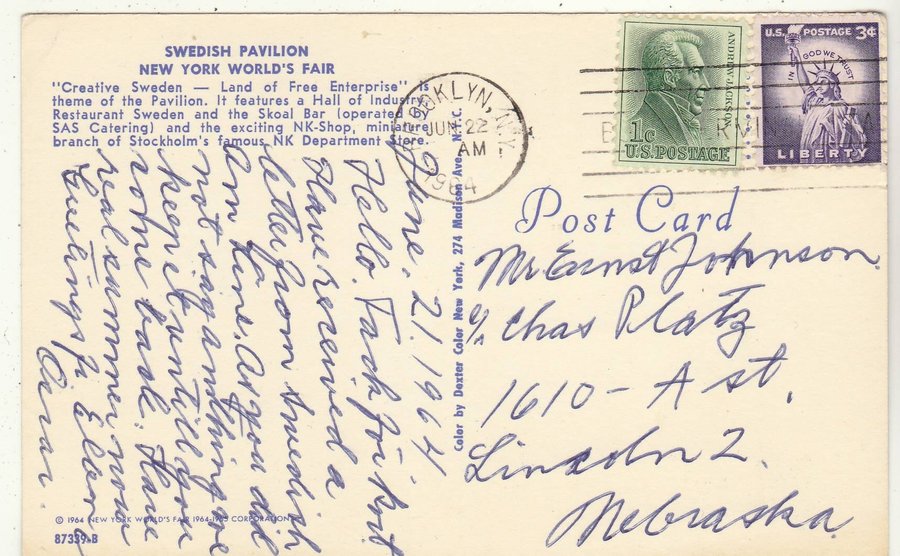 SWEDISH PAVILION
NEW YORK WORLD'S FAIR
"Creative Sweden — Land of Free Enterprise" is
theme of the Pavilion. It features a Hall of Industry,
Restaurant Sweden and the Skoal Bar (operated
SAS Catering) and the exciting NK-Shop, miniature
branch of Stockholm's famous NK Department Store.
BROOKLYN, N.Y.
JUN 22
AM
1964
ANDREW JACKSON
1c
U.S. POSTAGE
U.S. POSTAGE 3¢
IN GOD WE TRUST
LIBERTY
Post Card
June. 21. 1964
Hello. Tack för kort
Have received a
letter from Swedish
Am Line. As you did
not say anything we
keep it untill you
come back. Have
real summer now
Ellen
Color by Dexter Color New York, 274 Madison Ave., N.Y.C.
Mr Ernst Johnson
c/o Chas Platz
1610 - A st.
Lincoln 2.
Nebraska
© 1964 NEW YORK WORLD'S FAIR 1964-1965 CORPORATION
87339-B